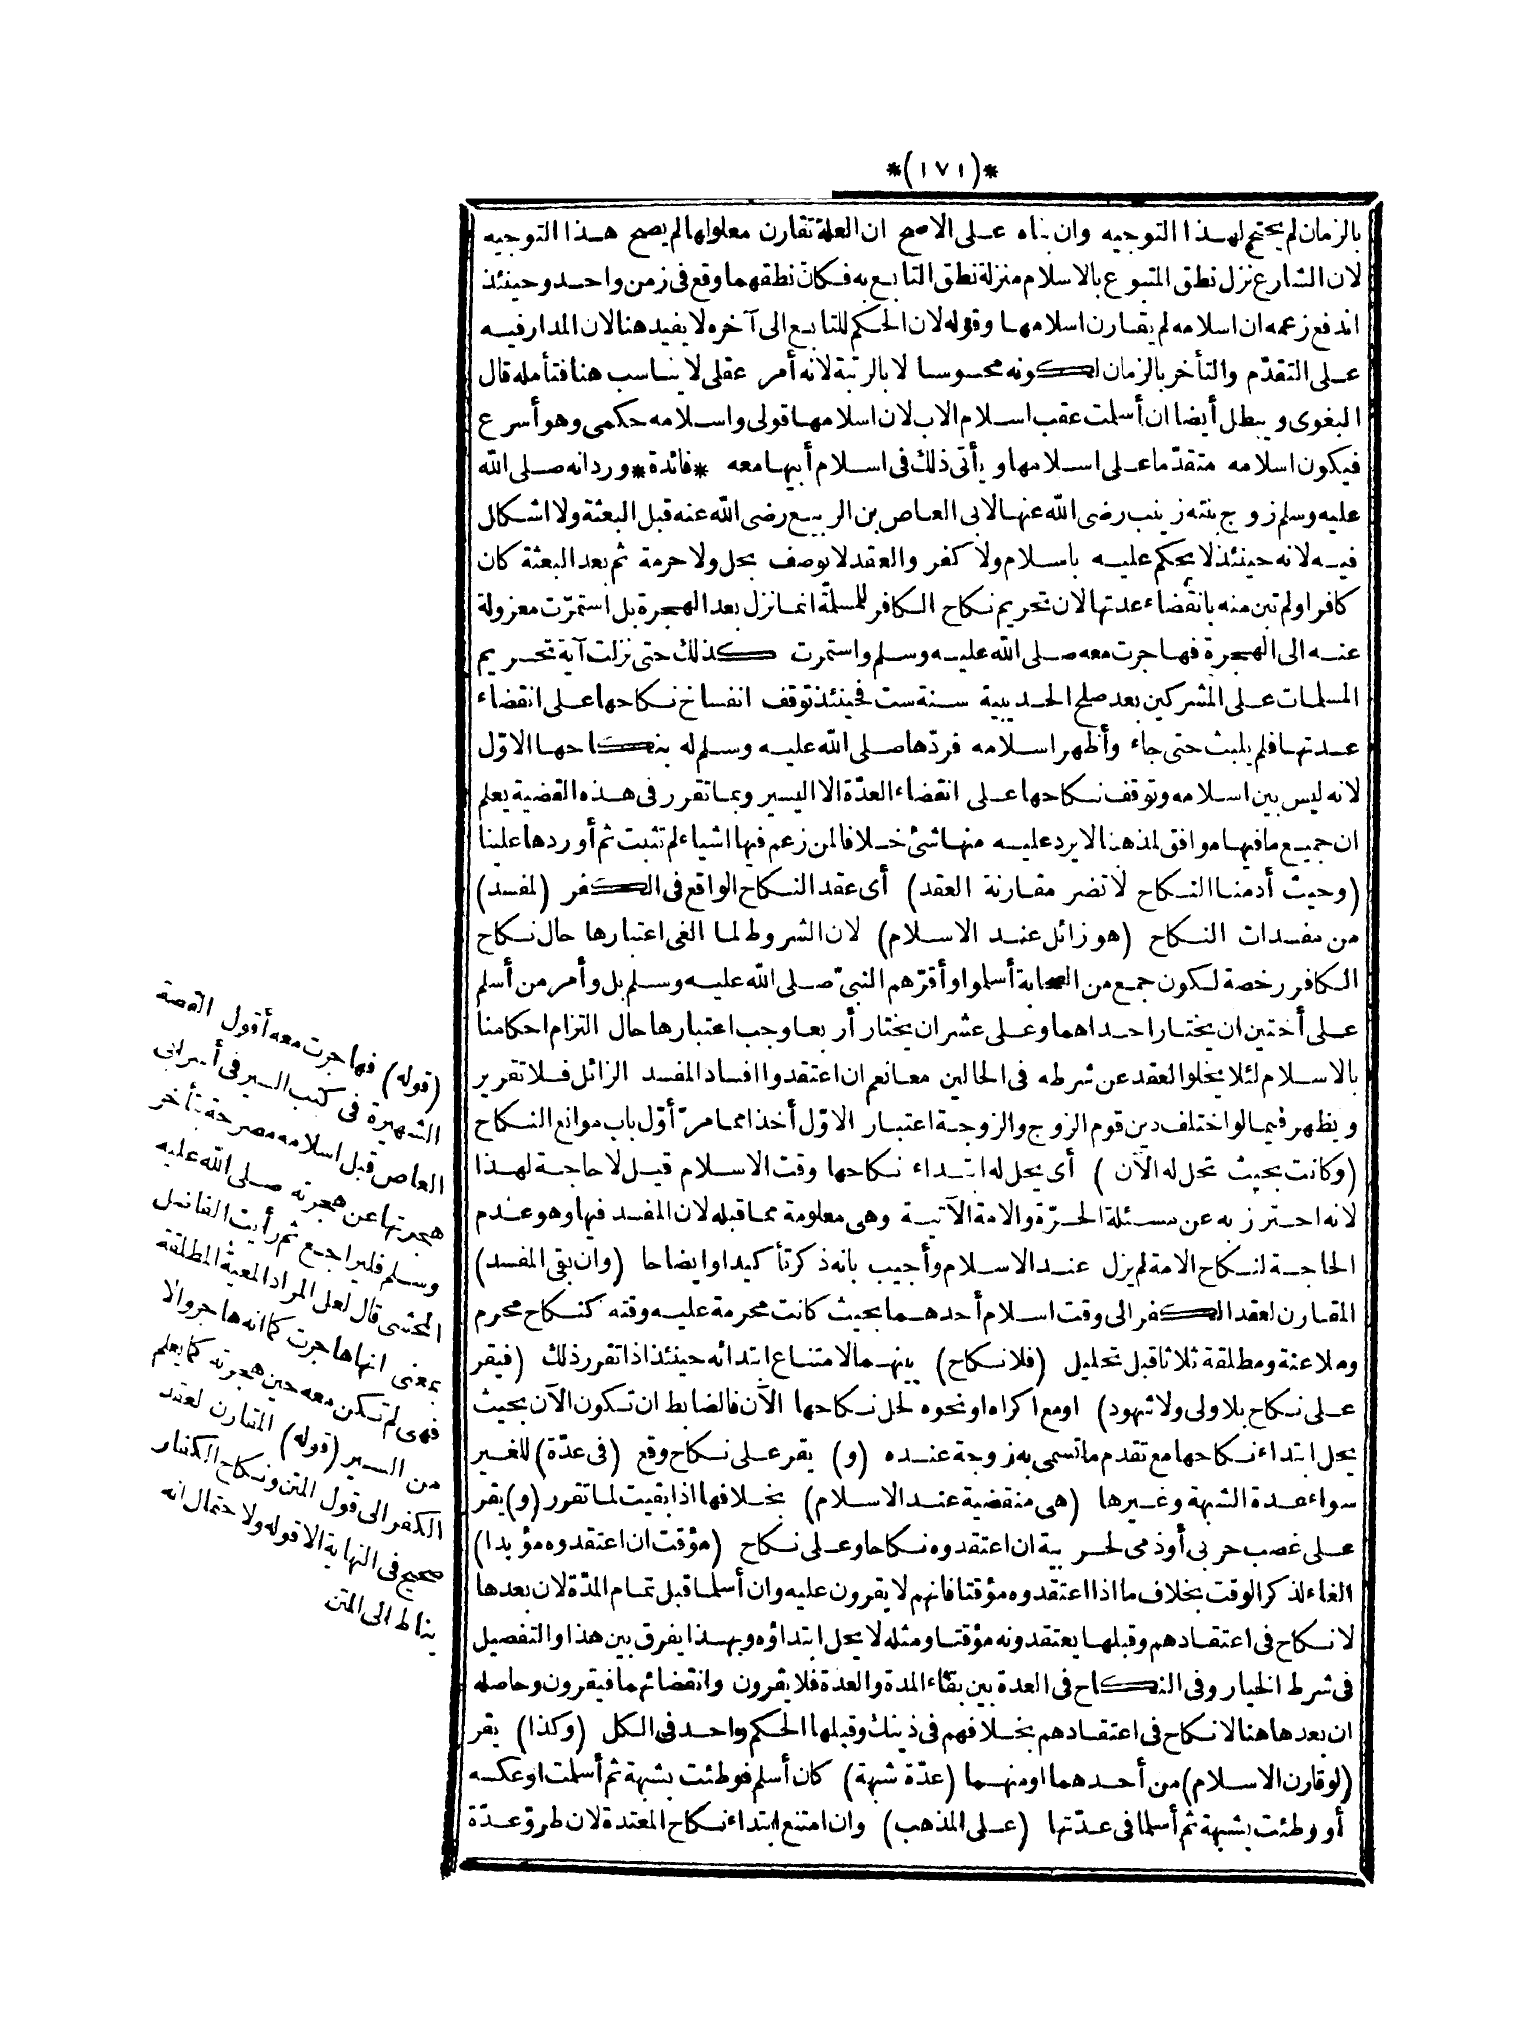 *(١٧١)*
بالزمان لم يحتج لهذا التوجيه وان بناه على الاصح ان العلة تقارن معلولها لم يصح هذا التوجيه
لان الشارع نزل نطق المتبوع بالاسلام منزلة نطق التابع به فكان نطقهما وقع فى زمن واحد وحينئذ
اندفع زعمه ان اسلامه لم يقارن اسلامها وقوله لان الحكم للتابع الى آخره لا يفيد هنا لان المدار فيه
على التقدّم والتأخر بالزمان لكونه محسوسا لا بالرتبة لانه أمر عقلى لا يناسب هنا فتأمله قال
البغوى ويبطل أيضا ان أسلمت عقب اسلام الاب لان اسلامها قولى واسلامه حكمى وهو أسرع
فيكون اسلامه متقدّما على اسلامها ويأتى ذلك فى اسلام أبيها معه *فائدة* ورد انه صلى الله
عليه وسلم زوج بنته زينب رضى الله عنها لابى العاص بن الربيع رضى الله عنه قبل البعثة ولا اشكال
فيه لانه حينئذ لا يحكم عليه باسلام ولا كفر والعقد لا يوصف بحل ولا حرمة ثم بعد البعثة كان
كافرا ولم تبن منه بانقضاء عدتها لان تحريم نكاح الكافر للمسلمة انما نزل بعد الهجرة بل استمرّت معزولة
عنه الى الهجرة فهاجرت معه صلى الله عليه وسلم واستمرت كذلك حتى نزلت آية تحريم
المسلمات على المشركين بعد صلح الحديبية سنة ست فحينئذ توقف انفساخ نكاحها على انقضاء
عدتها فلم يلبث حتى جاء وأظهر اسلامه فردّها صلى الله عليه وسلم له بنكاحها الاوّل
لانه ليس بين اسلامه وتوقف نكاحها على انقضاء العدّة الا اليسير وبما تقرر فى هذه القضية يعلم
ان جميع ما فيها موافق لمذهبنا لا يرد عليه منها شئ خلافا لمن زعم فيها اشياء لم تثبت ثم أوردها علينا
(وحيث أدمنا النكاح لا تضر مقارنة العقد) أى عقد النكاح الواقع فى الكفر (لمفسد)
من مفسدات النكاح (هو زائل عند الاسلام) لان الشروط لما الغى اعتبارها حال نكاح
الكافر رخصة لكون جمع من الصحابة أسلموا وأقرّهم النبىّ صلى الله عليه وسلم بل وأمر من أسلم
على أختين ان يختار احداهما وعلى عشر ان يختار أربعا وجب اعتبارها حال التزام احكامنا
بالاسلام لئلا يخلو العقد عن شرطه فى الحالين معا نعم ان اعتقدوا افساد المفسد الزائل فلا تقرير
ويظهر فيما لو اختلف دين قوم الزوج والزوجة اعتبار الاوّل أخذا مما مرّ أوّل باب موانع النكاح
(وكانت بحيث تحل له الآن ) أى يحل له ابتداء نكاحها وقت الاسلام قيل لا حاجة لهذا
لانه احترز به عن مسئلة الحرّة والامة الآتية وهى معلومة مما قبله لان المفسد فيها وهو عدم
الحاجة لنكاح الامة لم يزل عند الاسلام وأجيب بانه ذكر تأكيدا وايضاحا (وان بقى المفسد)
المقارن لعقد الكفر الى وقت اسلام أحدهما بحيث كانت محرمة عليه وقته كنكاح محرم
وملاعنة ومطلقة ثلاثا قبل تحليل (فلا نكاح) بينهما لامتناع ابتدائه حينئذ اذا تقرر ذلك (فيقر
على نكاح بلا ولى ولا شهود) او مع اكراه او نحوه لحل نكاحها الآن فالضابط ان تكون الآن بحيث
يحل ابتداء نكاحها مع تقدم ما تسمى به زوجة عنده (و) يقر على نكاح وقع (فى عدّة) للغير
سواء عدة الشبهة وغيرها (هى منقضية عند الاسلام) بخلافها اذا بقيت لما تقرر (و) يقر
على غصب حربى أو ذمى لحربية ان اعتقدوه نكاحا وعلى نكاح (مؤقت ان اعتقدوه مؤبدا)
الغاء لذكر الوقت بخلاف ما اذا اعتقدوه مؤقتا فانهم لا يقرون عليه وان أسلما قبل تمام المدّة لان بعدها
لا نكاح فى اعتقادهم وقبلها يعتقدونه مؤقتا ومثله لا يحل ابتداؤه وبهذا يفرق بين هذا والتفصيل
فى شرط الخيار وفى النكاح فى العدة بين بقاء المدة والعدة فلا يقرون وانقضائهما فيقرون وحاصله
ان بعدها هنا لا نكاح فى اعتقادهم بخلافهم فى ذينك وقبلها الحكم واحد فى الكل (وكذا) يقر
(لو قارن الاسلام) من أحدهما او منهما (عدّة شبهة) كان أسلم فوطئت بشبهة ثم أسلمت او عكسه
أو وطئت بشبهة ثم أسلما فى عدّتها (على المذهب) وان امتنع ابتداء نكاح المعتدة لان طروّ عدّة
(قوله) فهاجرت معه أقول القصة
الشهيرة فى كتب السير فى أسر ابى
العاص قبل اسلامه مصرحة بتأخر
هجرتها عن هجرته صلى الله عليه
وسلم فليراجع ثم رأيت الفاضل
المحشى قال لعل المراد المعية المطلقة
بمعنى انها هاجرت كما انه هاجر والا
فهى لم تكن معه حين هجرته كما يعلم
من السير (قوله) المقارن لعقد
الكفر الى قول المتن ونكاح الكفار
صحيح فى النهاية الا قوله ولا حتمال انه
يناط الى المتن